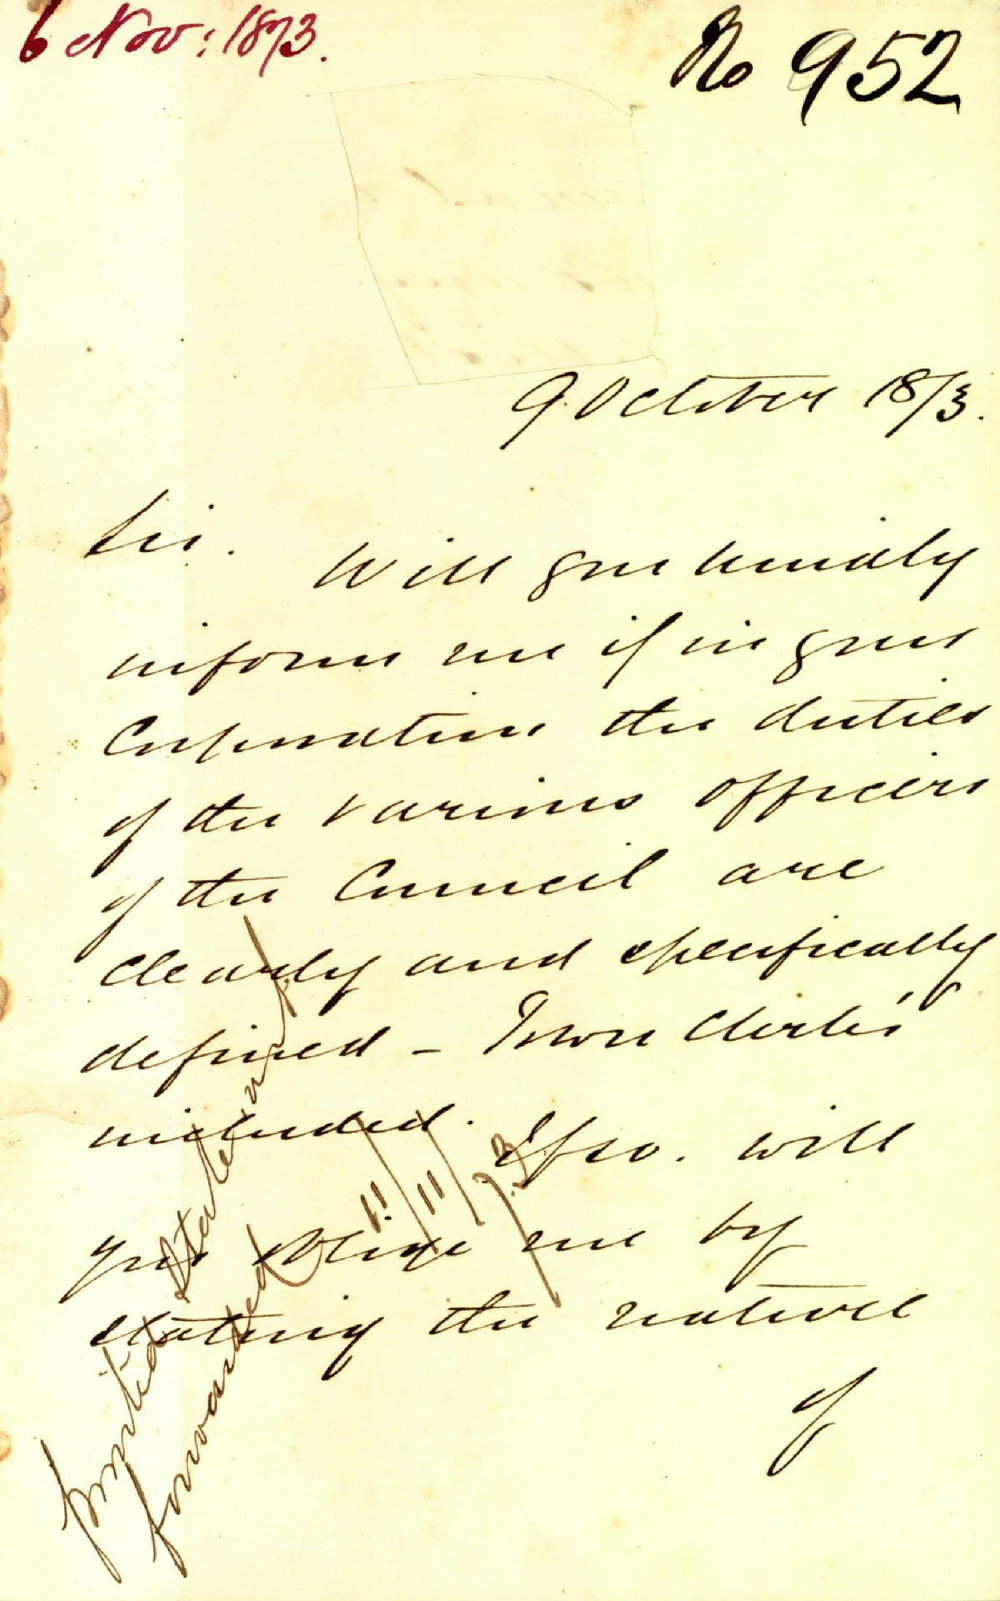 6 Nov: 1873.
No 952
9 October 1873.
Sir.
Will you kindly
inform me if in your
Corporation the duties
of the various officers
of the Council are
clearly and specifically
defined - Town Clerks'
included. If so. will
you oblige me by
stating the nature
of
printed Statement
forwarded
11/11/73